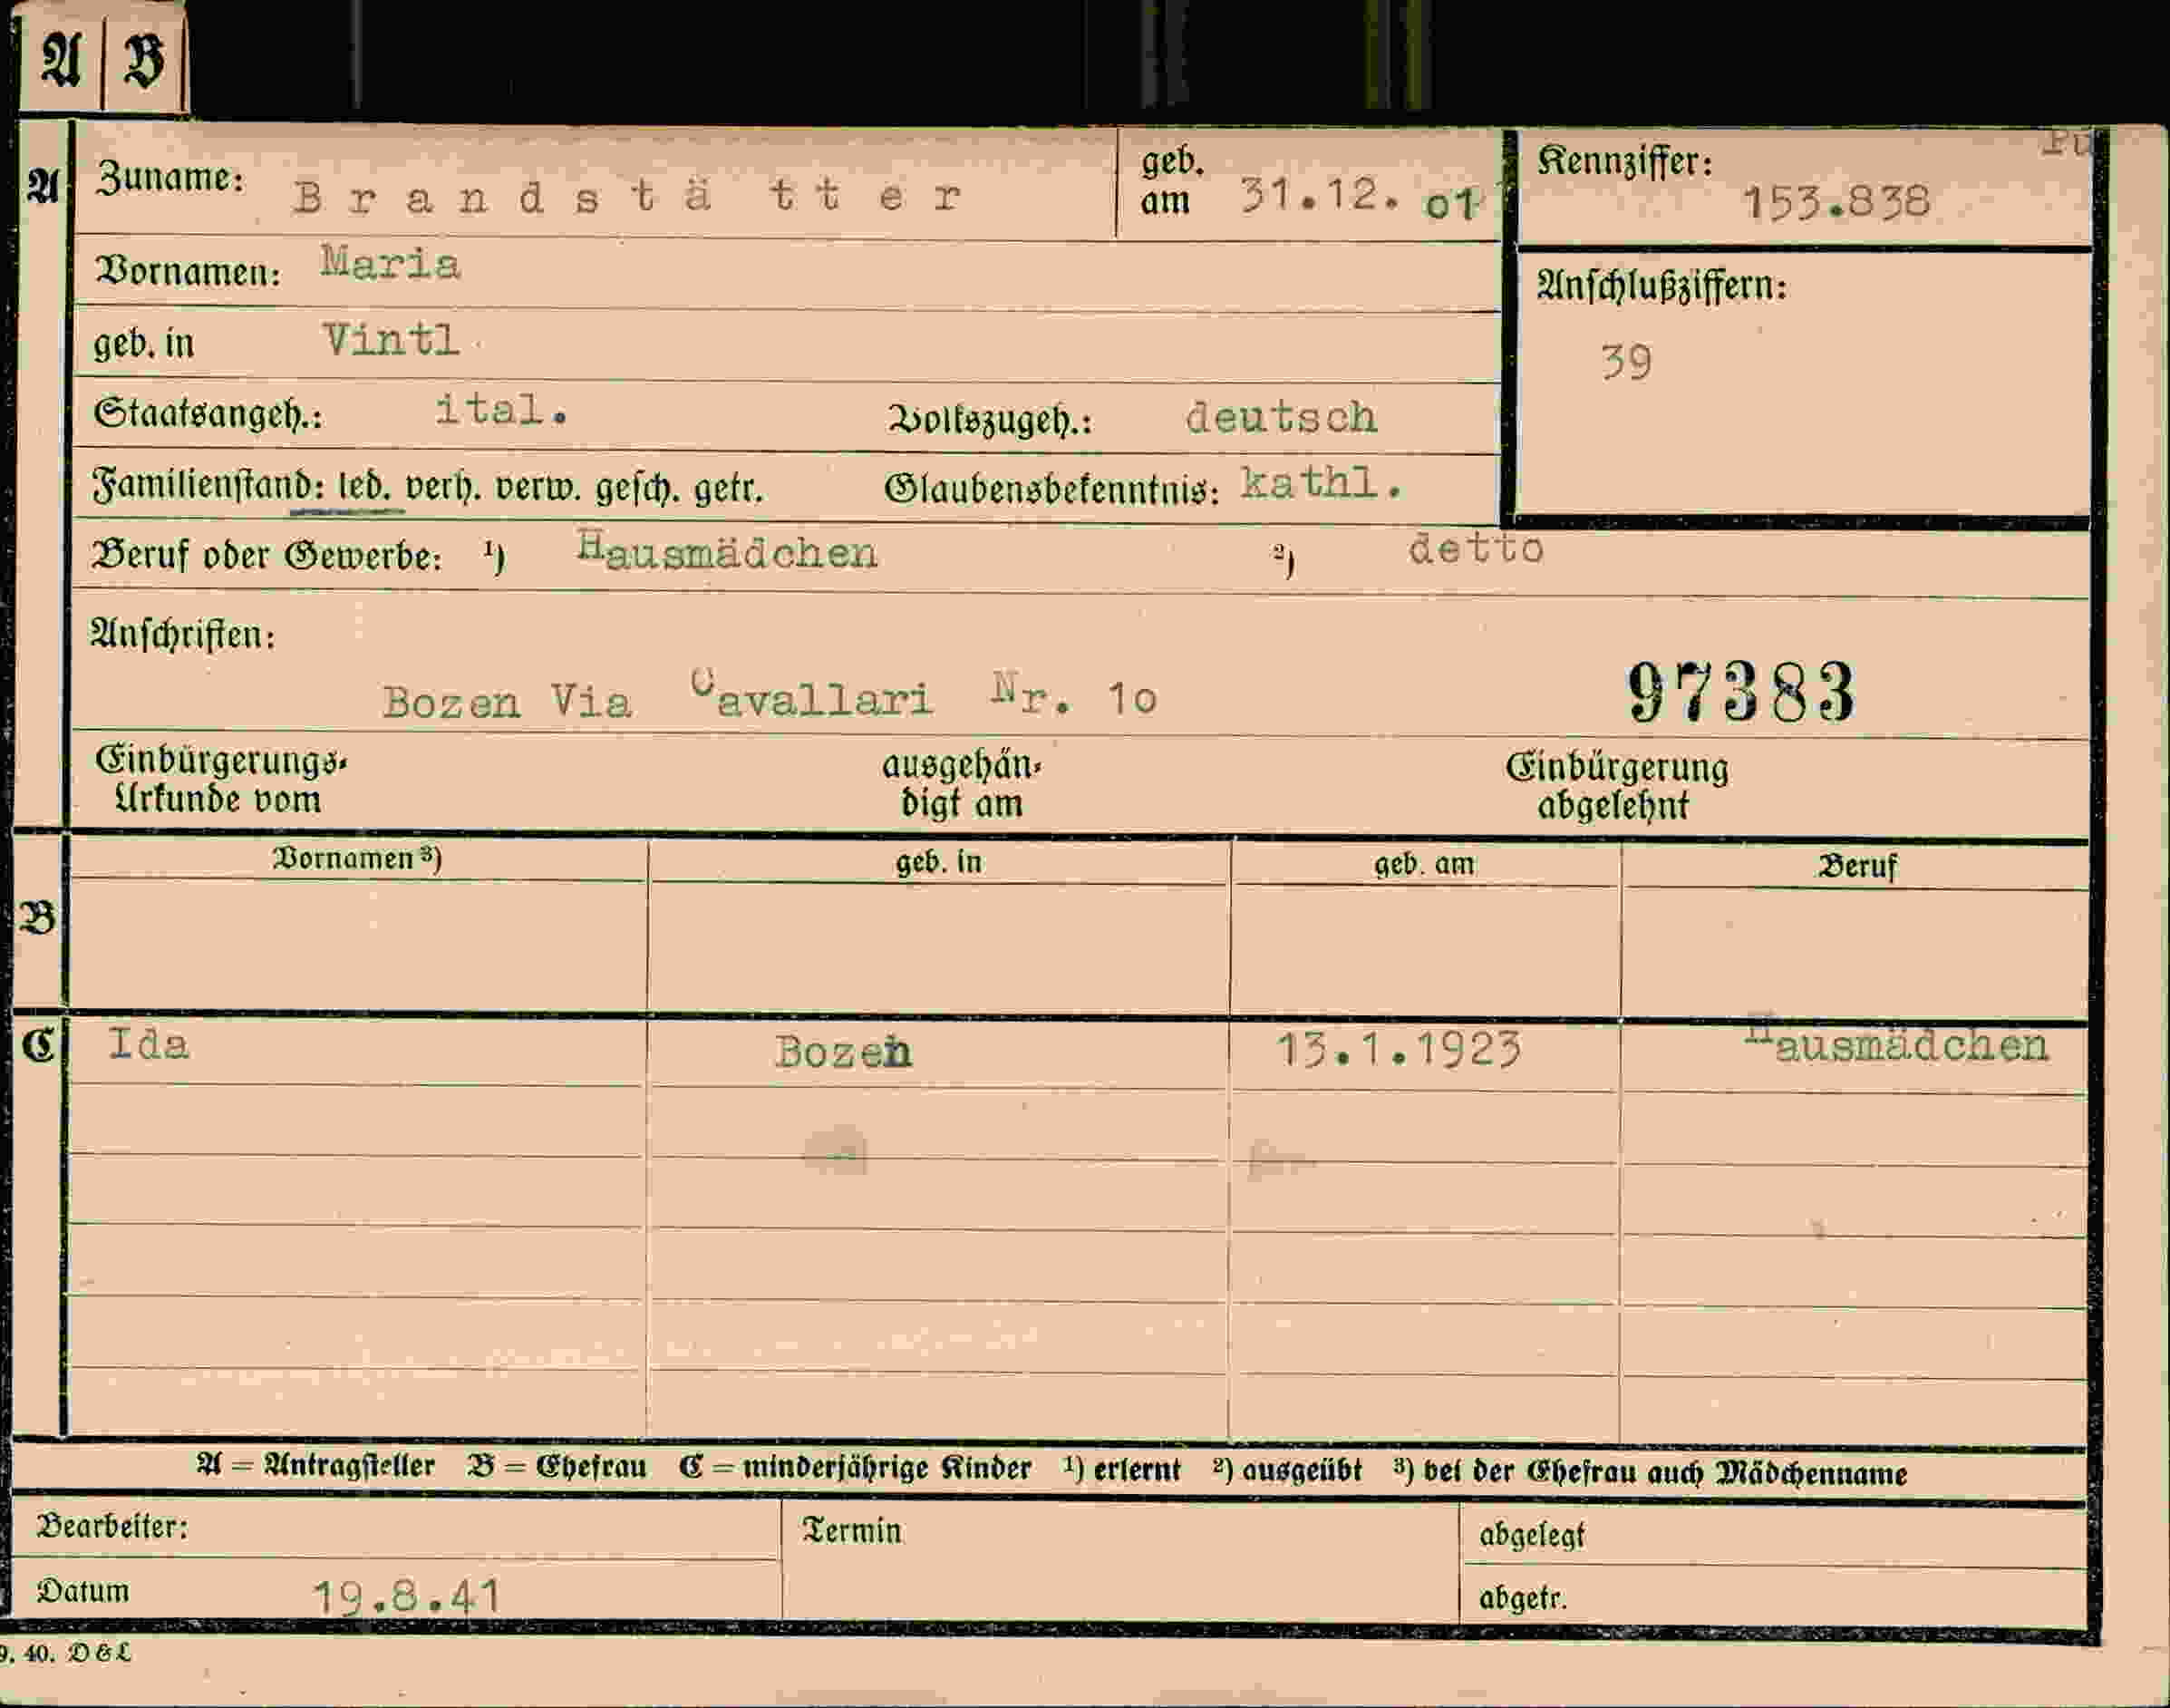 A B
A
Zuname: Brandstätter geb. am 31.12.01
Kennziffer: 153.838
Vornamen: Maria
Anschlußziffern: 39
geb. in Vintl
Staatsangeh.: ital. Volkszugeh.: deutsch
Familienstand: led. verh. verw. gesch. getr. Glaubensbekenntnis: kathl.
Beruf oder Gewerbe: ¹) Hausmädchen ²) detto
Anschriften:
Bozen Via Cavallari Nr. 10
97383
Einbürgerungs-
Urkunde vom
ausgehän-
digt am
Einbürgerung
abgelehnt
Vornamen ³) geb. in geb. am Beruf
B
C Ida Bozen 13.1.1923 Hausmädchen
A = Antragsteller B = Ehefrau C = minderjährige Kinder ¹) erlernt ²) ausgeübt ³) bei der Ehefrau auch Mädchenname
Bearbeiter:
Datum 19.8.41
Termin
abgelegt
abgetr.
9. 40. D & L